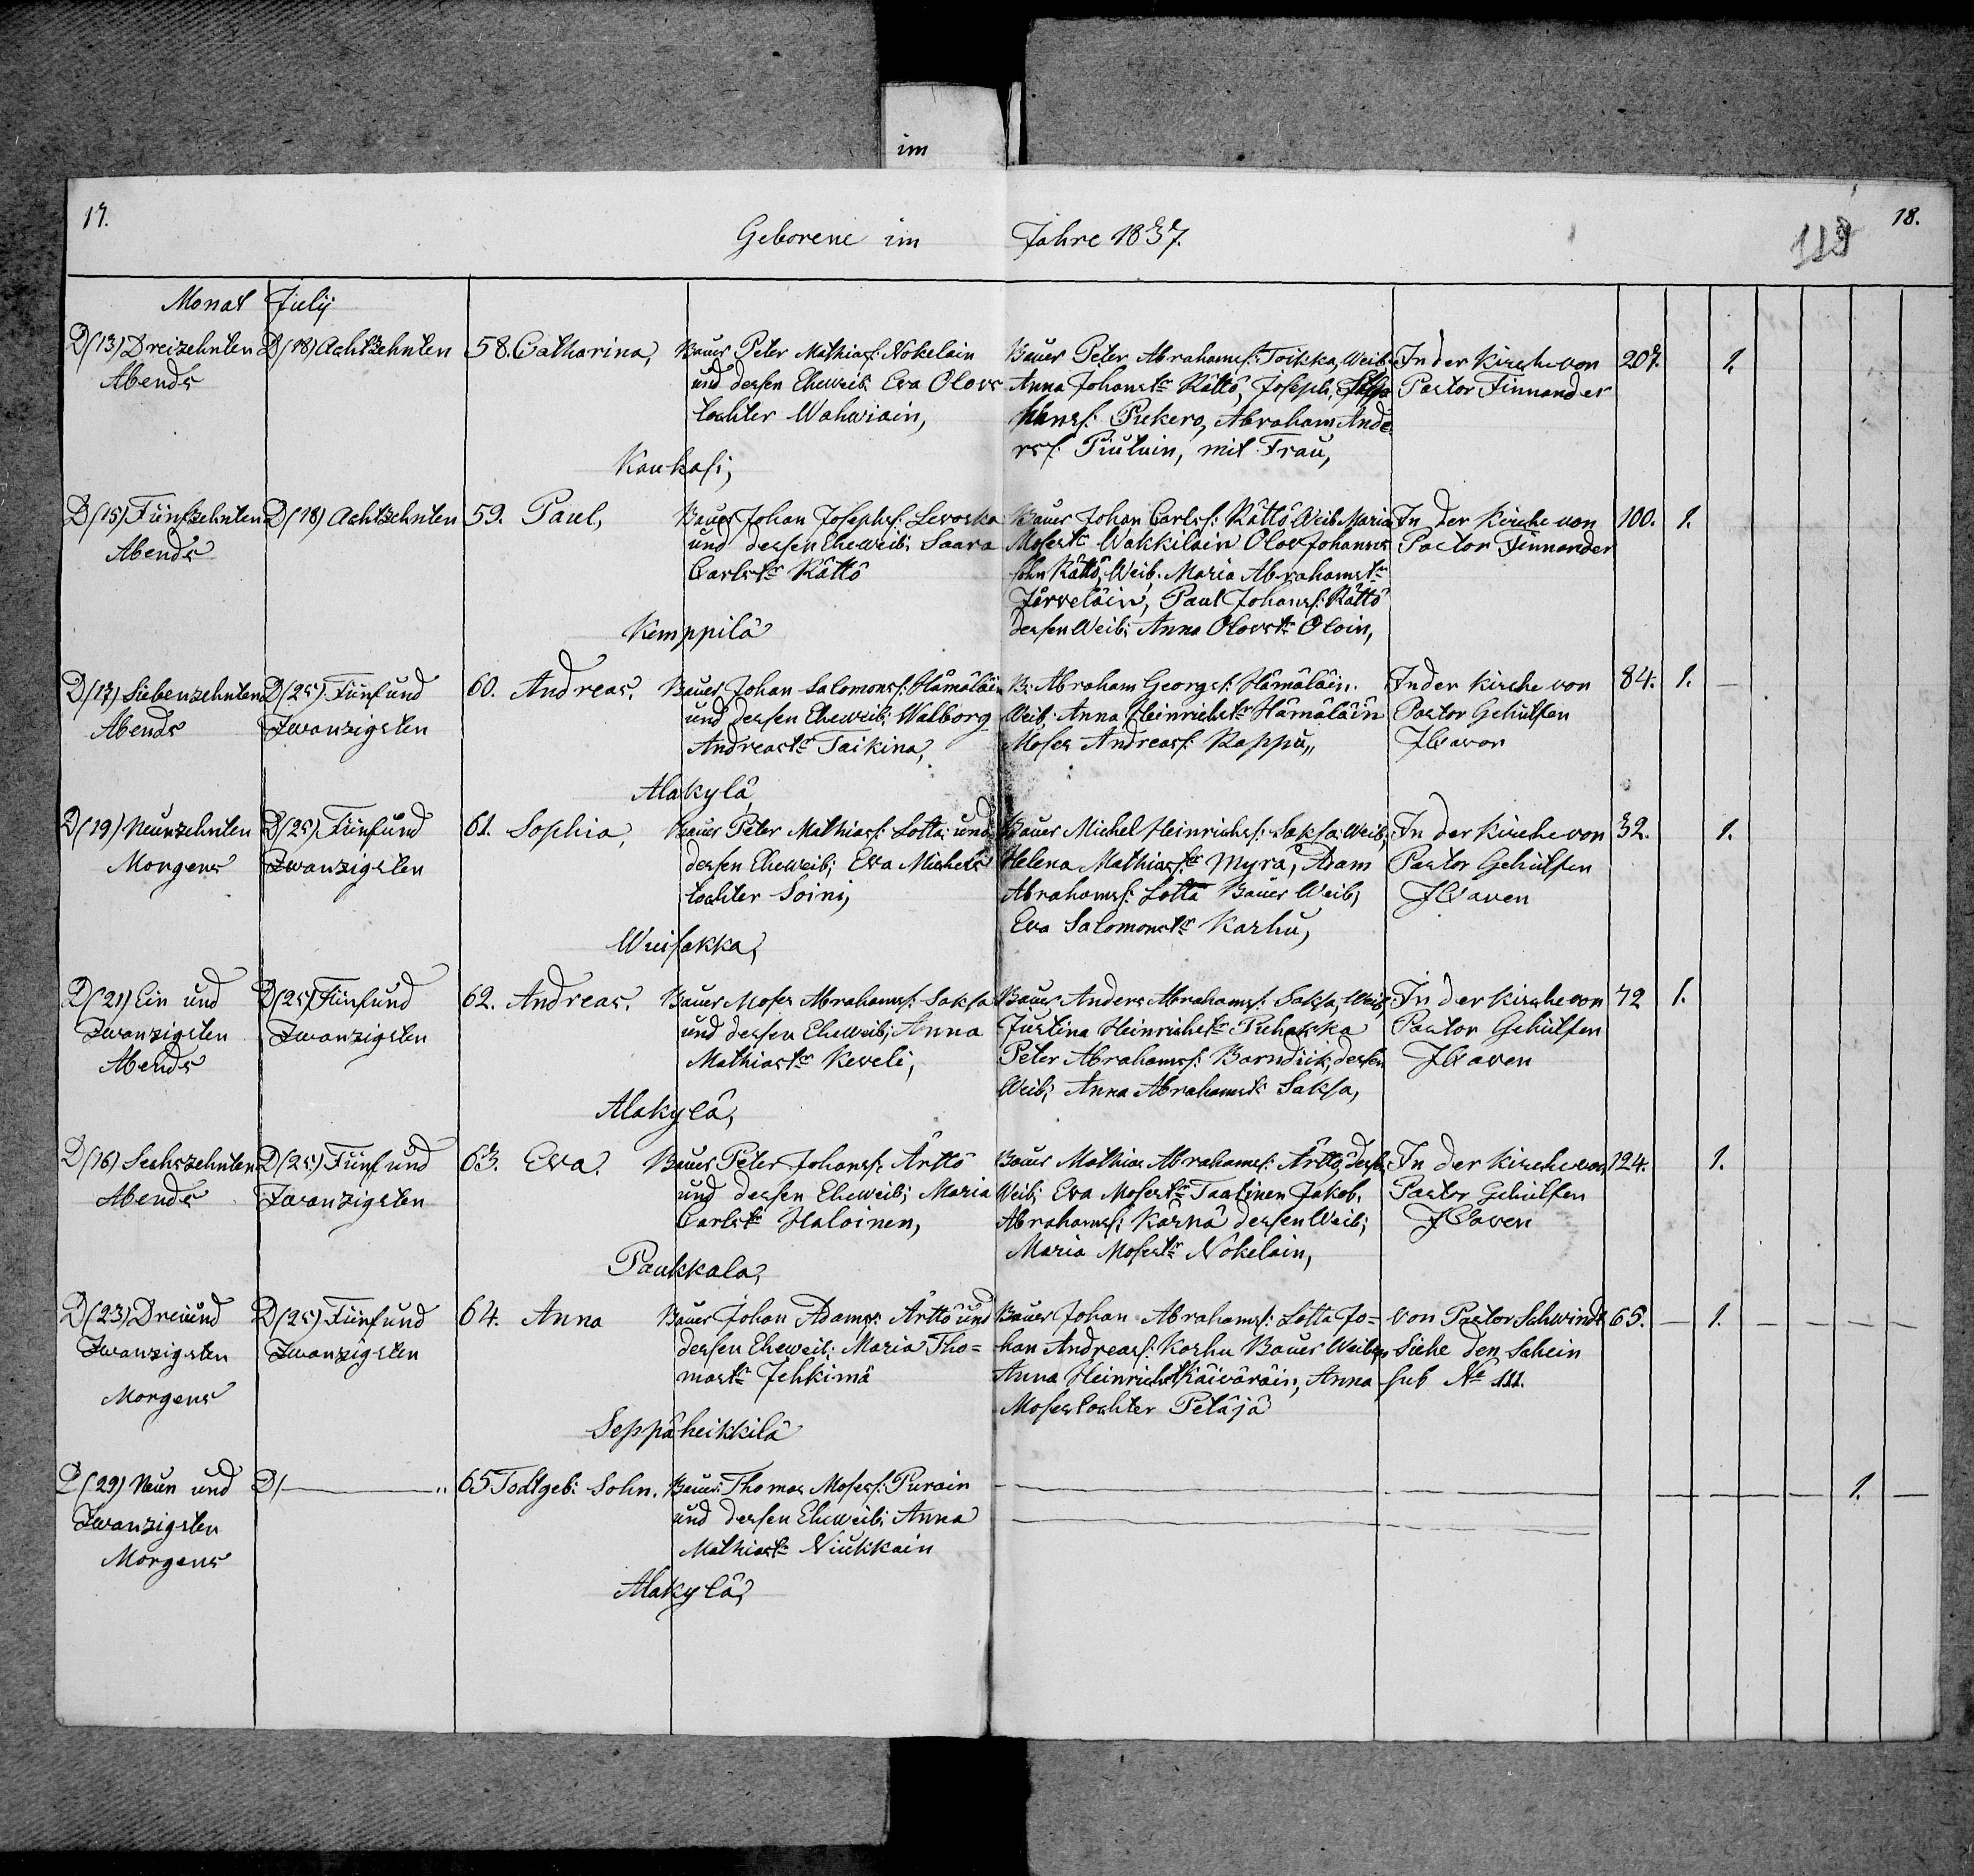 im
17.
18.
Geborene im Jahre 1837.
113
Monat Julij
D (13) Dreizehnten
Abends
D (18) Achtzehnten
58. Catharina,
Bauer Peter Mathiass: Nokelain
und dessen Eheweib: Eva Olovs
tochter Wahviain,
Koukasi,
Bauer Peter Abrahams: Toikka, Weib:
Anna Johanstr Rättö, Joseph,
Hanss: Pukero, Abraham Ande
rss: Piutuin, mit Frau,
In der Kirche von
Pastor Finnander
207. 1.
D (15) Fünfzehnten
Abends
D (18) Achtzehnten
59. Paul,
Bauer Johan Josephs: Levoska
und dessen Eheweib: Saara
Carlstr Rättö
Kemppilä
Bauer Johan Carlss: Rättö Weib Maria
Mosestr Wakkilain Olov Johannes
sohn Rättö, Weib: Maria Abrahamstr
Järveläin, Paul Johans: Rättö
dessen Weib: Anna Olovstr Oloin,
In der Kirche von
Pastor Finnander
100. 1.
D (17) Siebenzehnten
Abends
D (25) Fünf und
Zwanzigsten
60. Andreas.
Bauer Johan Salomons: Hämäläin
und dessen Eheweib: Walborg
Andreastr Taikina,
Alakylä
B: Abraham Georgs: Hämäläin.
Weib: Anna Heinrichstr Hämäläin
Moses Andreass: Rappu,,
In der Kirche von
Pastor Gehülfen
84. 1. —
D (19) Neunzehnten
Morgens
D (25) Fünf und
Zwanzigsten
61. Sophia,
Bauer Peter Mathiass: Lotta: und
dessen Eheweib: Eva Michels
tochter Soini,
Wuisakka,
Bauer Michel Heinrichs: Saksa: Weib:
Helena Mathiastr Myra, Adam
Abrahams: Lotta Bauer Weib:
Eva Salomonstr Karhu,
In der Kirche von
Pastor Gehülfen
32. 1.
D (21) Ein und
Zwanzigsten
Abends
D (25) Fünf und
Zwanzigsten
62. Andreas.
Bauer Moses Abrahams: Saksa
und dessen Eheweib: Anna
Mathiastr Keveli,
Alakylä,
Bauer Anders Abrahams: Saksa, Weib:
Justina Heinrichstr Puhakka
Peter Abrahams: Barndick, dessen
Weib: Anna Abrahamstr Saksa,
In der Kirche von
Pastor Gehülfen
72 1.
D (16) Sechszehnten
Abends
D (25) Fünf und
Zwanzigsten
63. Eva.
Bauer Peter Johans: Ärttö
und dessen Eheweib: Maria
Carlstr Haloinen,
Paukkala,
Bauer Mathias Abrahams: Ärttö, dess:
Weib: Eva Mosestr Taatinen Jakob.
Abrahams: Kärnä dessen Weib:
Maria Mosestr Nokelain,
In der Kirche von
Pastor Gehülfen
124. 1.
D (23) Drei und
Zwanzigsten
Morgens
D (25) Fünf und
Zwanzigsten
64. Anna
Bauer Johan Adams: Ärttö und
dessen Eheweib: Maria Tho=
mastr Jehkimä
Seppäheikkilä
Bauer Johan Abrahams: Lotta Jo=
han Andreass: Karhu Bauer Weiber
Anna Heinrichstr Käiväräin, Anna
Mosestochter Petäjä
von Pastor Schwindt
Siehe den Schein
sub No 111.
65. — 1. — — — —
D (29) Neun und
Zwanzigsten
Morgens
D/ — „
65 Todtgeb: Sohn.
Bauer: Thomas Moses: Purain
und dessen Eheweib: Anna
Mathiastr Niukkain
Alakylä,
1.